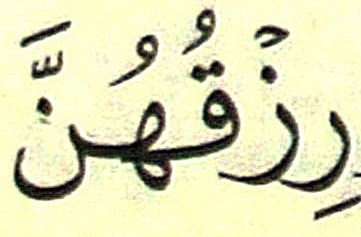 رِزْقُهُنَّ